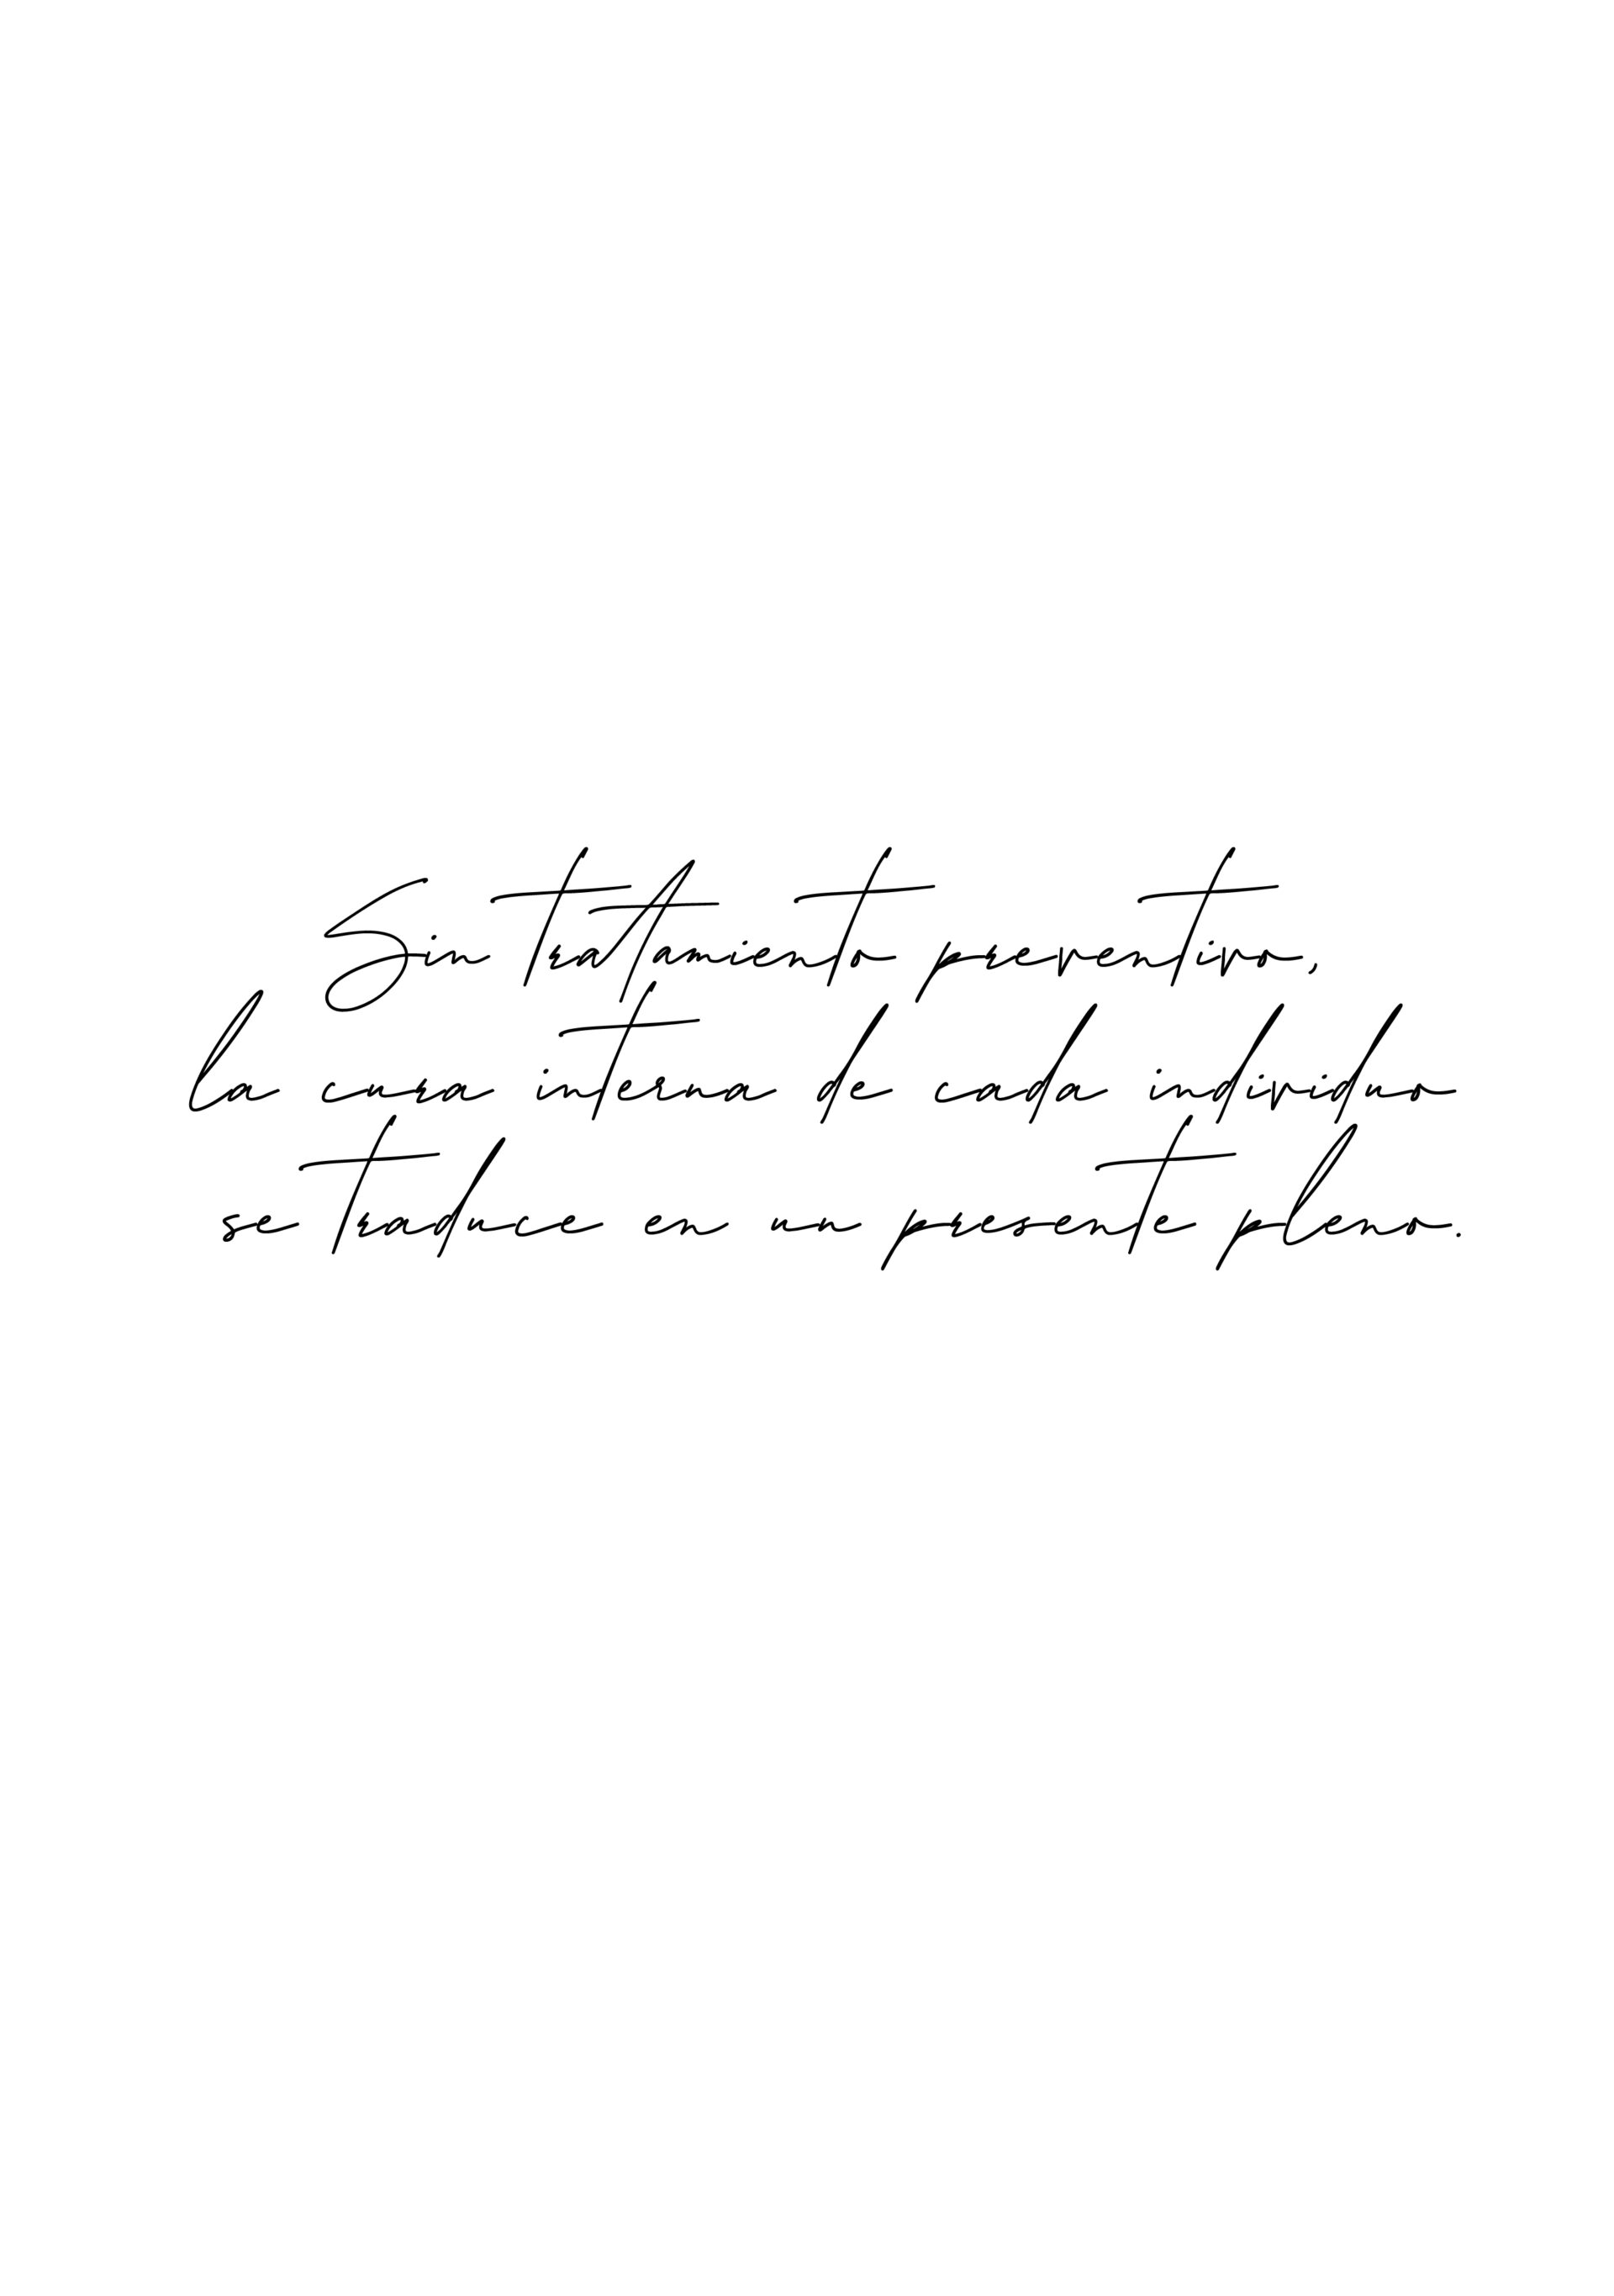 Sin tratamiento preventivo,
la cura interna de cada individuo
se traduce en un presente pleno.